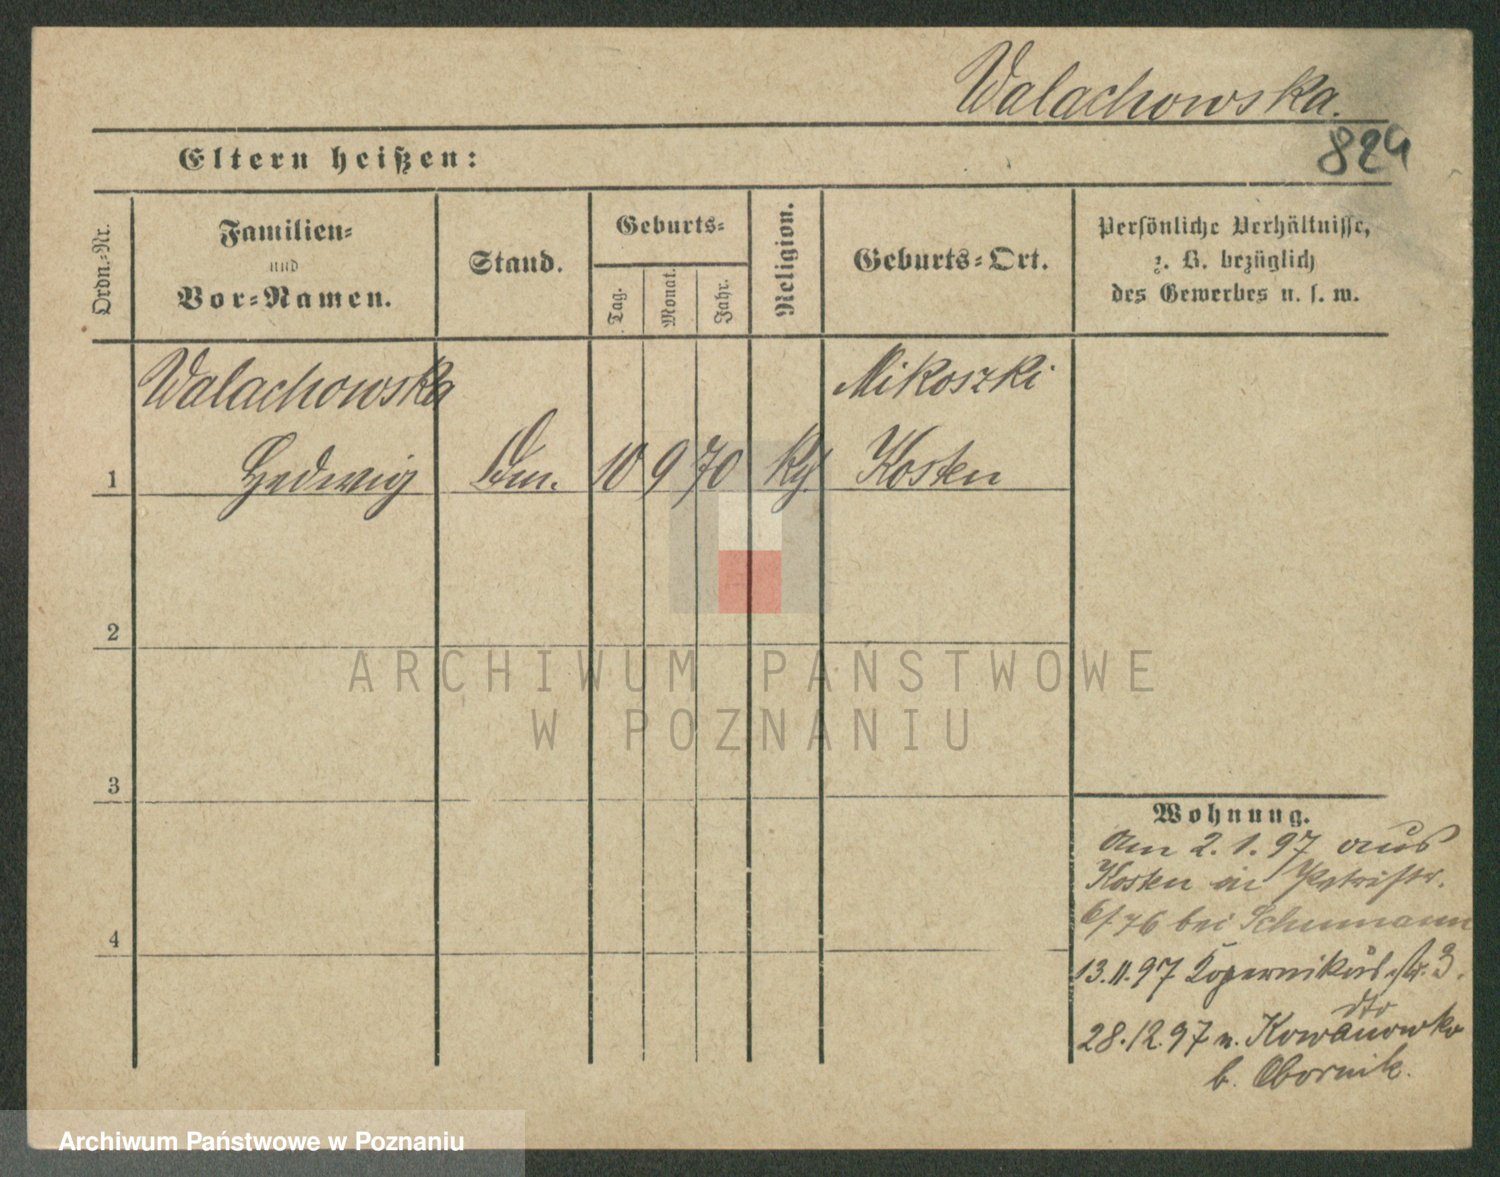 Walachowska.
824
Eltern heißen:
Ordn.-Nr.
Familien-
und
Vor-Namen.
Stand.
Geburts-
Tag.
Monat.
Jahr.
Religion.
Geburts-Ort.
Persönliche Verhältnisse,
z. B. bezüglich
des Gewerbes u. s. w.
Walachowska
Mikoszki
1 Hedwig 10 9 70 Kosten
2
3
4
Wohnung.
Am 2. 1. 97 aus
Kosten in Petristr.
6/76 bei Schumann
13.11.97 Kopernikusstr. 3.
dto
28.12.97 n. Kowanowko
b. Obornik.
ARCHIWUM PAŃSTWOWE
W POZNANIU
Archiwum Państwowe w Poznaniu